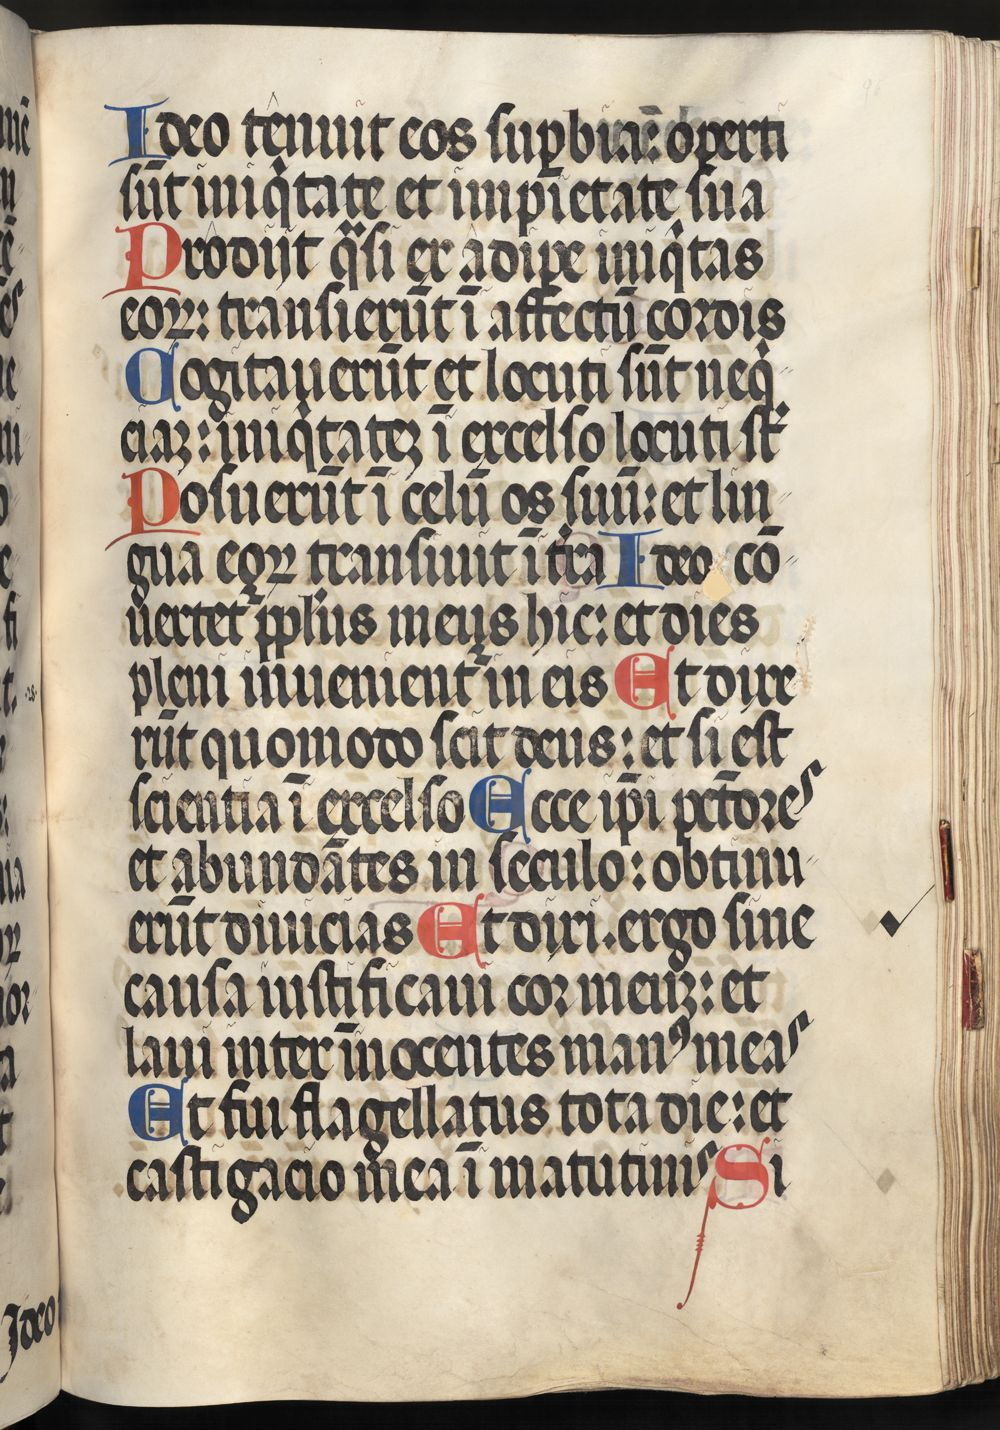 Ideo tenuit eos sup̲bia: op̲erti
sūt iniqͥtate et impietate sua
Prodijt qͣsi ex adipe iniqͥtas
eoꝝ: transierūt ī affectū cordis
Cogitauerūt et locuti sūt neqͥ
ciaꝫ: iniqͥtateꝫ ī excelso locuti st̄
Posuerūt ī celū os suū: et lin
gua eoꝝ transiuit ī tͥra Ideo cō
uertet᷑ pp̄lus meus hic: et dies
pleni inuenient᷑ in eis Et dixe
rūt quomodo scit deus: et si est
scientia ī excelso Ecce ip̄i pc̄tores
et abundātes in seculo: obtinu
erūt diuicias Et dixi. ergo sine
causa iustificaui cor meuꝫ: et
laui inter īnocentes manꝰ meas
Et fui flagellatus tota die: et
castigacio mea ī matutinis Si
Ideo